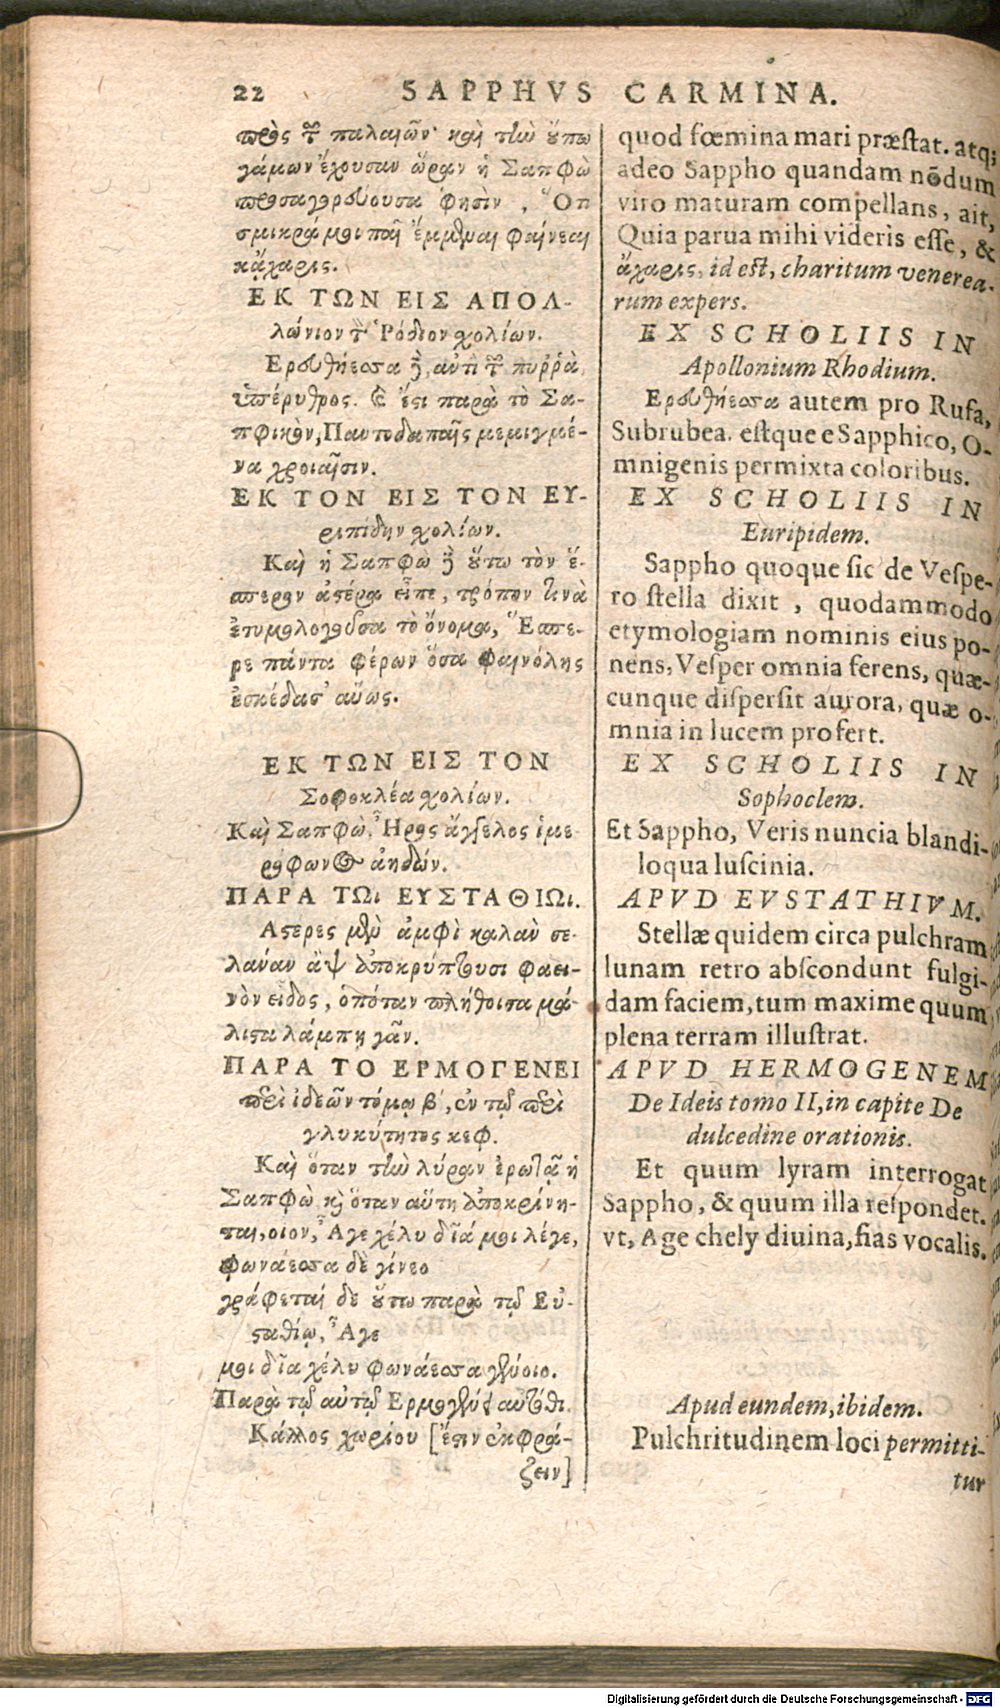 22 SAPPHVS CARMINA.
πρὸς τ παλαιῶν· καὶ τὴν οὔπω
γάμων ἔχουσαν ὥραν ἡ Σαπφὼ
προσαγορεύουσα φησὶν, Ὅτι
σμικρά μοι παῖ ἔμμεναι φαίνεαι
κἄχαρις.
ΕΚ ΤΩΝ ΕΙΣ ΑΠΟΛ-
λώνιον τ Ῥόδιον χολίων.
Ερευθήεσσα δὲ, αὐτὶ τοῦ πυῤῥὰ,
ὑπέρυθρος. καὶ ἔστι παρὰ τὸ Σα-
πφικὸν, Παντοδαπαῖς μεμιγμέ-
να χροιαῖσιν.
ΕΚ ΤΟΝ ΕΙΣ ΤΟΝ ΕΥ-
ριπίδην χολίων.
Καὶ ἡ Σαπφὼ δὲ οὕτω τὸν ἕ-
σπερον ἀστέρα εἶπε, τρόπον τινὰ
ἐτυμολογοῦσα τὸ ὄνομα, Ἕσπε-
ρε πάντα φέρων ὅσα φαινόλης
ἐσκέδασ' αὔως.
ΕΚ ΤΩΝ ΕΙΣ ΤΟΝ
Σοφοκλέα χολίων.
Καὶ Σαπφὼ, Ἦρος ἄγγελος ἱμε-
ρόφωνος ἀηδών.
ΠΑΡΑ ΤΩι ΕΥΣΤΑΘΙΩι.
Αστέρες μὲν ἀμφὶ καλὰν σε-
λάναν ἂψ ἀποκρύπτουσι φαει-
νὸν εἶδος, ὁπόταν πλήθοισα μά-
λιστα λάμπῃ γᾶν.
ΠΑΡΑ ΤΟ ΕΡΜΟΓΕΝΕΙ
περὶ ἰδεῶν τόμῳ β', ἐν τῷ περὶ
γλυκύτητος κεφ.
Καὶ ὅταν τὴν λύραν ἐρωτᾷ ἡ
Σαπφὼ κ ὅταν αὕτη ἀποκρίνη-
ται, οἷον, Ἄγε χέλυ δῖά μοι λέγε,
φωνάεσσα δὲ γίνεο
γράφεταί δε οὕτω παρὰ τῷ Εὐ-
σταθίῳ, Ἄγε
μοι δῖα χέλυ φωνάεσσα γένοιο.
Παρὰ τῷ αὐτῷ Ερμογένει αὐτόθι.
Κάλλος χωρίου [ἔστιν ἐκφρά-
ζειν]
quod fœmina mari præstat. atq;
adeo Sappho quandam nōdum
viro maturam compellans, ait,
Quia parua mihi videris esse, &
ἄχαρις, id est, charitum venerea-
rum expers.
EX SCHOLIIS IN
Apollonium Rhodium.
Ερευθήεσσα autem pro Rufa,
Subrubea. estque e Sapphico, O-
mnigenis permixta coloribus.
EX SCHOLIIS IN
Euripidem.
Sappho quoque sic de Vespe-
ro stella dixit, quodammodo
etymologiam nominis eius po-
nens, Vesper omnia ferens, quæ-
cunque dispersit aurora, quæ o-
mnia in lucem profert.
EX SCHOLIIS IN
Sophoclem.
Et Sappho, Veris nuncia blandi-
loqua luscinia.
APVD EVSTATHIVM.
Stellæ quidem circa pulchram
lunam retro abscondunt fulgi-
dam faciem, tum maxime quum
plena terram illustrat.
APVD HERMOGENEM
De Ideis tomo II, in capite De
dulcedine orationis.
Et quum lyram interrogat
Sappho, & quum illa respondet.
vt, Age chely diuina, fias vocalis.
Apud eundem, ibidem.
Pulchritudinem loci permitti-
tur
Digitalisierung gefördert durch die Deutsche Forschungsgemeinschaft - DFG